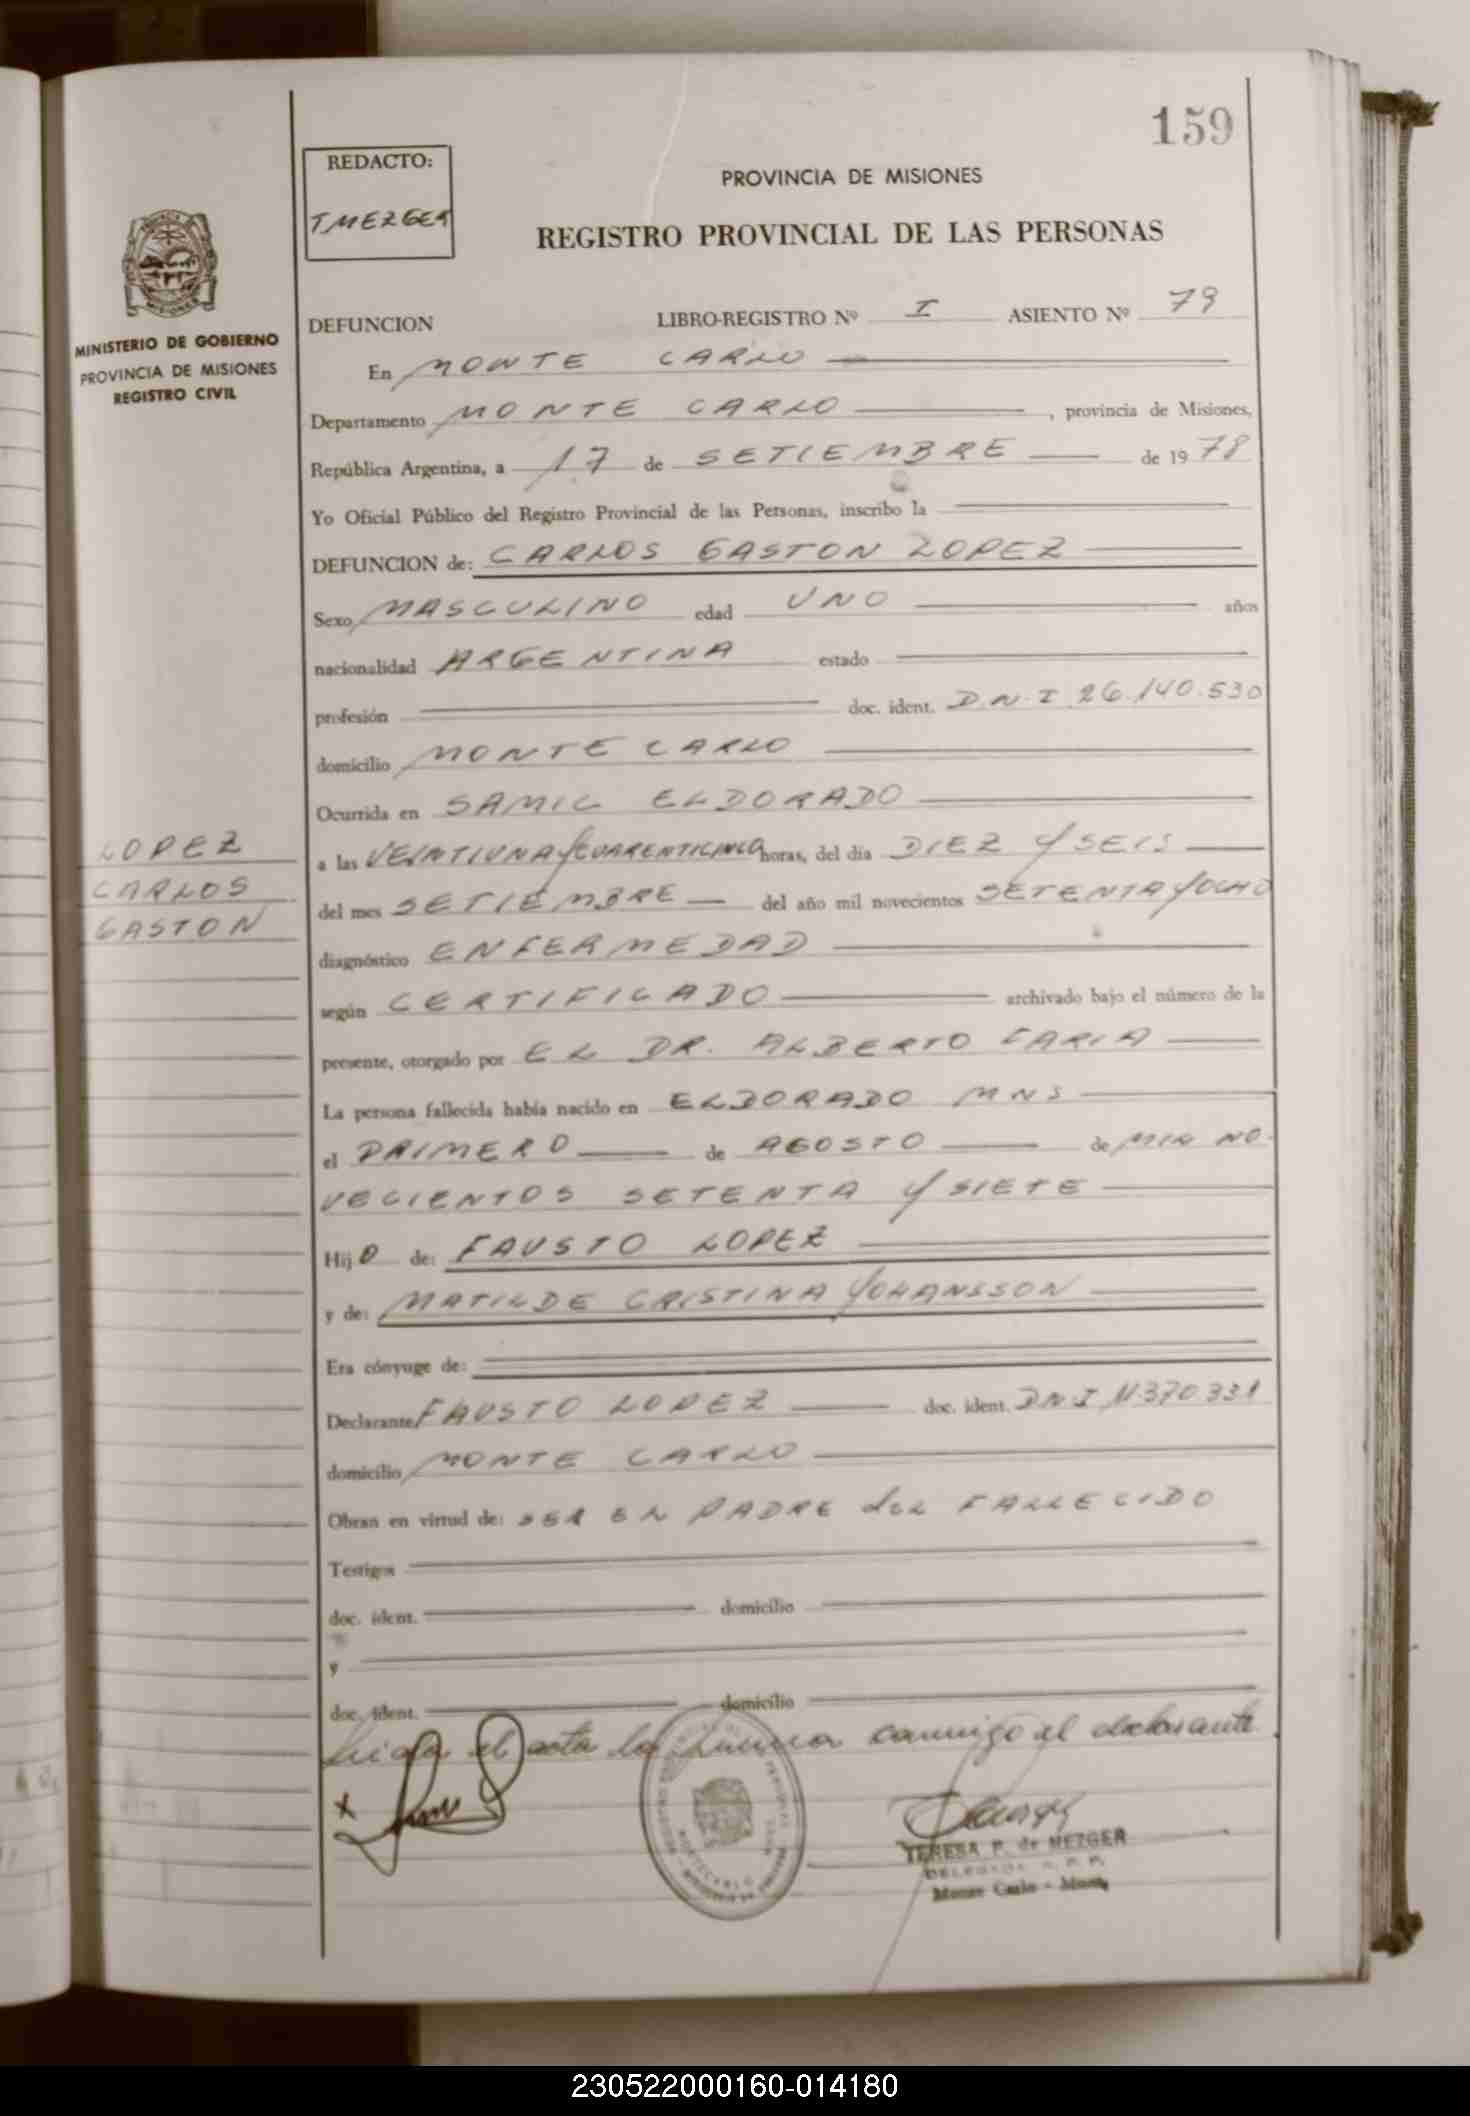 159
REDACTO:
T. MEZGER
PROVINCIA DE MISIONES
REGISTRO PROVINCIAL DE LAS PERSONAS
MINISTERIO DE GOBIERNO
PROVINCIA DE MISIONES
REGISTRO CIVIL
DEFUNCION LIBRO-REGISTRO Nº I ASIENTO Nº 79
En MONTE CARLO
Departamento MONTE CARLO , provincia de Misiones,
República Argentina, a 17 de SETIEMBRE de 1978
Yo Oficial Público del Registro Provincial de las Personas, inscribo la
DEFUNCION de: CARLOS GASTON LOPEZ
Sexo MASCULINO edad UNO años
nacionalidad ARGENTINA estado
profesión doc. ident. D.N.I 26.140.530
domicilio MONTE CARLO
Ocurrida en SAMIC ELDORADO
LOPEZ
CARLOS
GASTON
a las VEINTIUNA Y CUARENTICINCO horas, del día DIEZ Y SEIS
del mes SETIEMBRE del año mil novecientos SETENTA Y OCHO
diagnóstico ENFERMEDAD
según CERTIFICADO archivado bajo el número de la
presente, otorgado por EL DR. ALBERTO FARIA
La persona fallecida había nacido en ELDORADO MNS
el PRIMERO de AGOSTO de MIL NO-
VECIENTOS SETENTA Y SIETE
Hijo de: FAUSTO LOPEZ
y de: MATILDE CRISTINA YOHANSSON
Era cónyuge de:
Declarante FAUSTO LOPEZ doc. ident. D.N.I 11.370.331
domicilio MONTE CARLO
Obran en virtud de: SER EL PADRE del FALLECIDO
Testigos
doc. ident. domicilio
y
doc. ident. domicilio
Leida el acta la firma conmigo el declarante
TERESA P. de MEZGER
DELEGADA R. P. P.
Monte Carlo - Mnes.
230522000160-014180